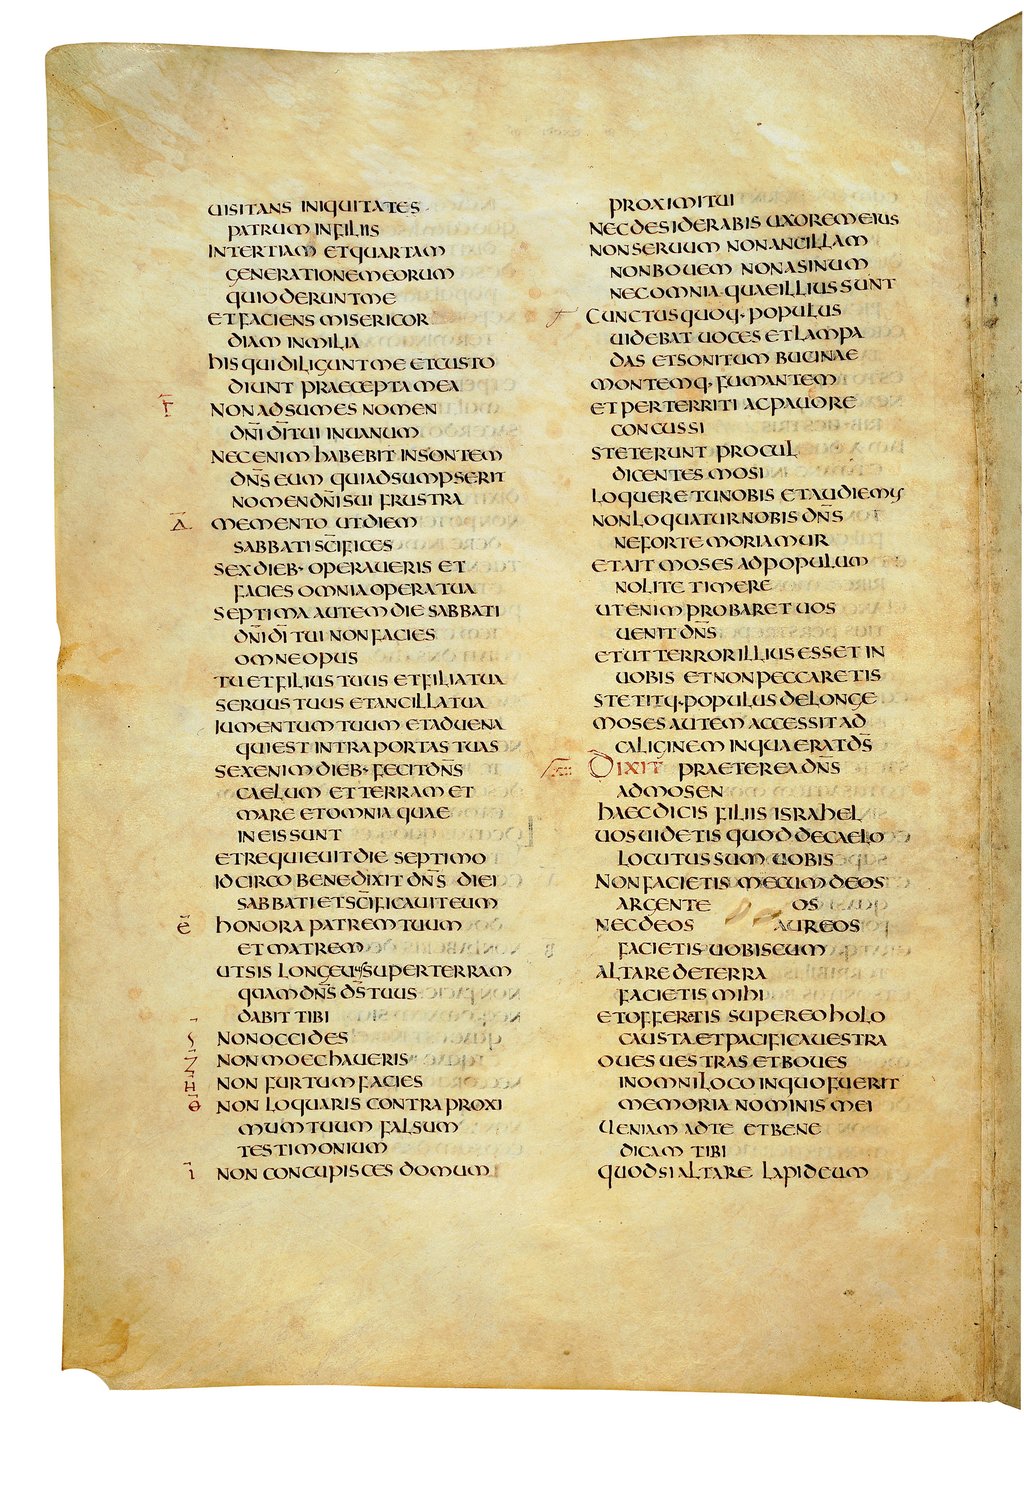 UISITANS INIQUITATES
PATRUM IN FILIIS
IN TERTIAM ET QUARTAM
GENERATIONEM EORUM
QUI ODERUNT ME
ET FACIENS MISERICOR
DIAM IN MILIA
HIS QUI DILIGUNT ME ET CUSTO
DIUNT PRAECEPTA MEA
Γ̅ NON ADSUMES NOMEN
DN̅I DI̅ TUI IN UANUM
NEC ENIM HABEBIT INSONTEM
DN̅S EUM QUI ADSUMPSERIT
NOMEN DN̅I SUI FRUSTRA
Δ̅ MEMENTO UT DIEM
SABBATI SC̅IFICES
SEX DIEB· OPERAUERIS ET
FACIES OMNIA OPERA TUA
SEPTIMA AUTEM DIE SABBATI
DN̅I DI̅ TUI NON FACIES
OMNE OPUS
TU ET FILIUS TUUS ET FILIA TUA
SERUUS TUUS ET ANCILLA TUA
IUMENTUM TUUM ET ADUENA
QUI EST INTRA PORTAS TUAS
SEX ENIM DIEB· FECIT DN̅S
CAELUM ET TERRAM ET
MARE ET OMNIA QUAE
IN EIS SUNT
ET REQUIEUIT DIE SEPTIMO
IDCIRCO BENEDIXIT DN̅S DIEI
SABBATI ET SC̅IFICAUIT EUM
Ε̅ HONORA PATREM TUUM
ET MATREM
UT SIS LONGEUUS SUPER TERRAM
QUAM DN̅S DS̅ TUUS
DABIT TIBI
Ϛ̅ NON OCCIDES
Ζ̅ NON MOECHAUERIS
Η̅ NON FURTUM FACIES
Θ̅ NON LOQUARIS CONTRA PROXI
MUM TUUM FALSUM
TESTIMONIUM
Ι̅ NON CONCUPISCES DOMUM
PROXIMI TUI
NEC DESIDERABIS UXOREM EIUS
NON SERUUM NON ANCILLAM
NON BOUEM NON ASINUM
NEC OMNIA QUAE ILLIUS SUNT
CUNCTUS QUOQ· POPULUS
UIDEBAT UOCES ET LAMPA
DAS ET SONITUM BUCINAE
MONTEMQ· FUMANTEM
ET PERTERRITI AC PAUORE
CONCUSSI
STETERUNT PROCUL
DICENTES MOSI
LOQUERE TU NOBIS ET AUDIEMUS
NON LOQUATUR NOBIS DN̅S
NE FORTE MORIAMUR
ET AIT MOSES AD POPULUM
NOLITE TIMERE
UT ENIM PROBARET UOS
UENIT DN̅S
ET UT TERROR ILLIUS ESSET IN
UOBIS ET NON PECCARETIS
STETITQ· POPULUS DE LONGE
MOSES AUTEM ACCESSIT AD
CALIGINEM IN QUA ERAT DS̅
DIXIT PRAETEREA DN̅S
AD MOSEN
HAEC DICIS FILIIS ISRAHEL
UOS UIDETIS QUOD DE CAELO
LOCUTUS SUM UOBIS
NON FACIETIS MECUM DEOS
ARGENTEOS
NEC DEOS AUREOS
FACIETIS UOBISCUM
ALTARE DE TERRA
FACIETIS MIHI
ET OFFERETIS SUPER EO HOLO
CAUSTA ET PACIFICA UESTRA
OUES UESTRAS ET BOUES
IN OMNI LOCO IN QUO FUERIT
MEMORIA NOMINIS MEI
UENIAM AD TE ET BENE
DICAM TIBI
QUOD SI ALTARE LAPIDEUM